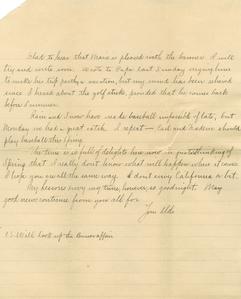 Glad to hear that Mama is pleased with the banner. I will
try and write soon. Wrote to Papa last Sunday urging him
to make his trip partly a vacation, but my mind has been
since I heard about the golf sticks, provided that he comes back
before Summer.
Ham and I now have made baseball impossible of late, but
Monday we had a great catch. I repeat — Carl and should
play baseball this Spring.
The time is so full of delights here now in
Spring that I really don't know what will happen when it comes.
I hope you are all the same way. I don't envy California a bit.
My lessons envy my time, however, so goodnight. May
good news continue from you all for
Your
P.S. Will look up the affair